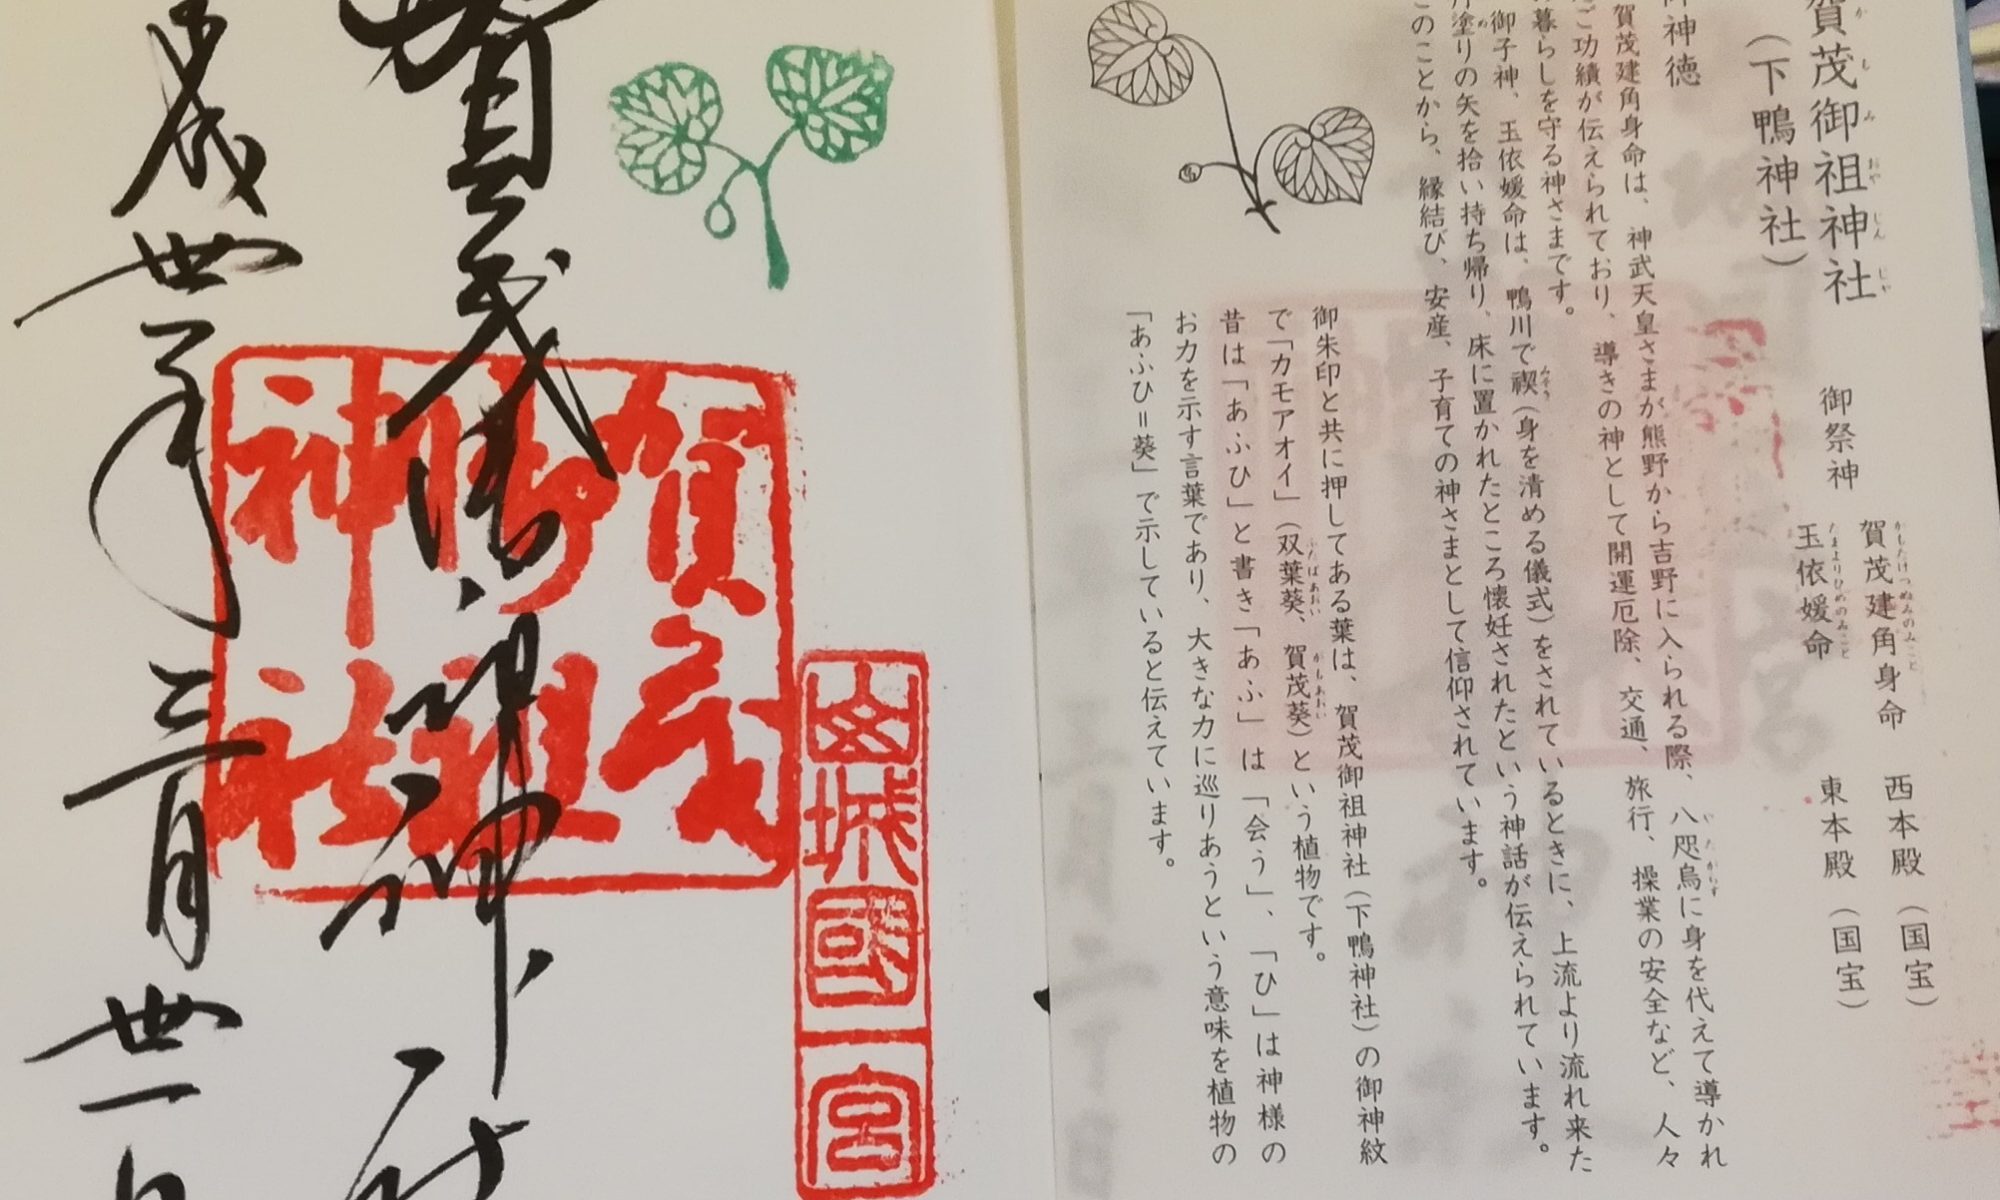 賀茂御祖神社
（下鴨神社）
御祭神
賀茂建角身命 西本殿（国宝）
玉依媛命 東本殿（国宝）
御神徳
賀茂建角身命は、神武天皇さまが熊野から吉野に入られる際、八咫烏に身を代えて導かれ
たご功績が伝えられており、導きの神として開運厄除、交通、旅行、操業の安全など、人々
の暮らしを守る神さまです。
御子神、玉依媛命は、鴨川で禊（身を清める儀式）をされているときに、上流より流れ来た
丹塗りの矢を拾い持ち帰り、床に置かれたところ懐妊されたという神話が伝えられています。
このことから、縁結び、安産、子育ての神さまとして信仰されています。
御朱印と共に押してある葉は、賀茂御祖神社（下鴨神社）の御神紋
で「カモアオイ」（双葉葵、賀茂葵）という植物です。
昔は「あふひ」と書き「あふ」は「会う」、「ひ」は神様の
お力を示す言葉であり、大きな力に巡りあうという意味を植物の
「あふひ＝葵」で示していると伝えています。
山城國一宮
賀茂御祖神社
賀茂御祖神社
成卅一年三月卅一日